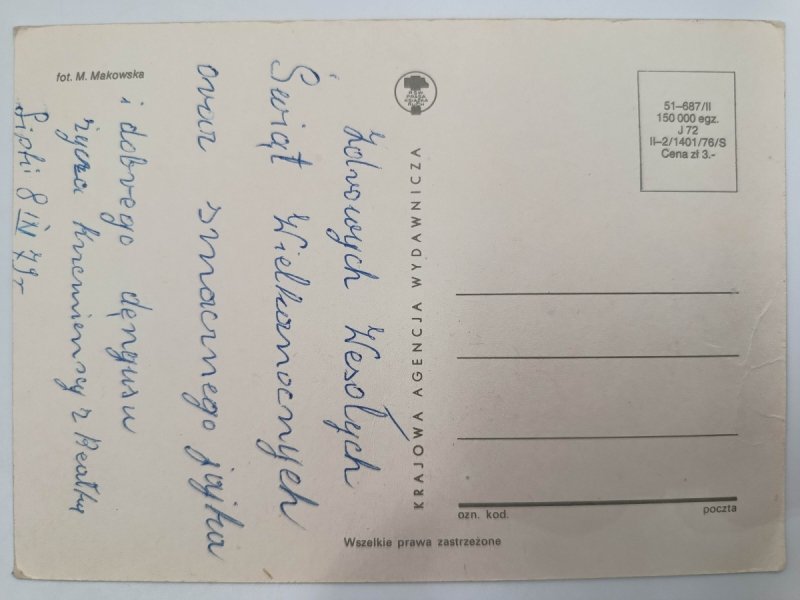 Zdrowych Wesołych
Świąt Wielkanocnych
oraz smacznego jajka
i dobrego dyngusu
życzą Krzemieńscy z Beatką
8 IV 79 r
fot. M. Makowska
RSW
PRASA
KSIĄŻKA
RUCH
KRAJOWA AGENCJA WYDAWNICZA
51–687/II
150 000 egz.
J 72
II–2/1401/76/S
Cena zł 3.-
ozn. kod.
poczta
Wszelkie prawa zastrzeżone